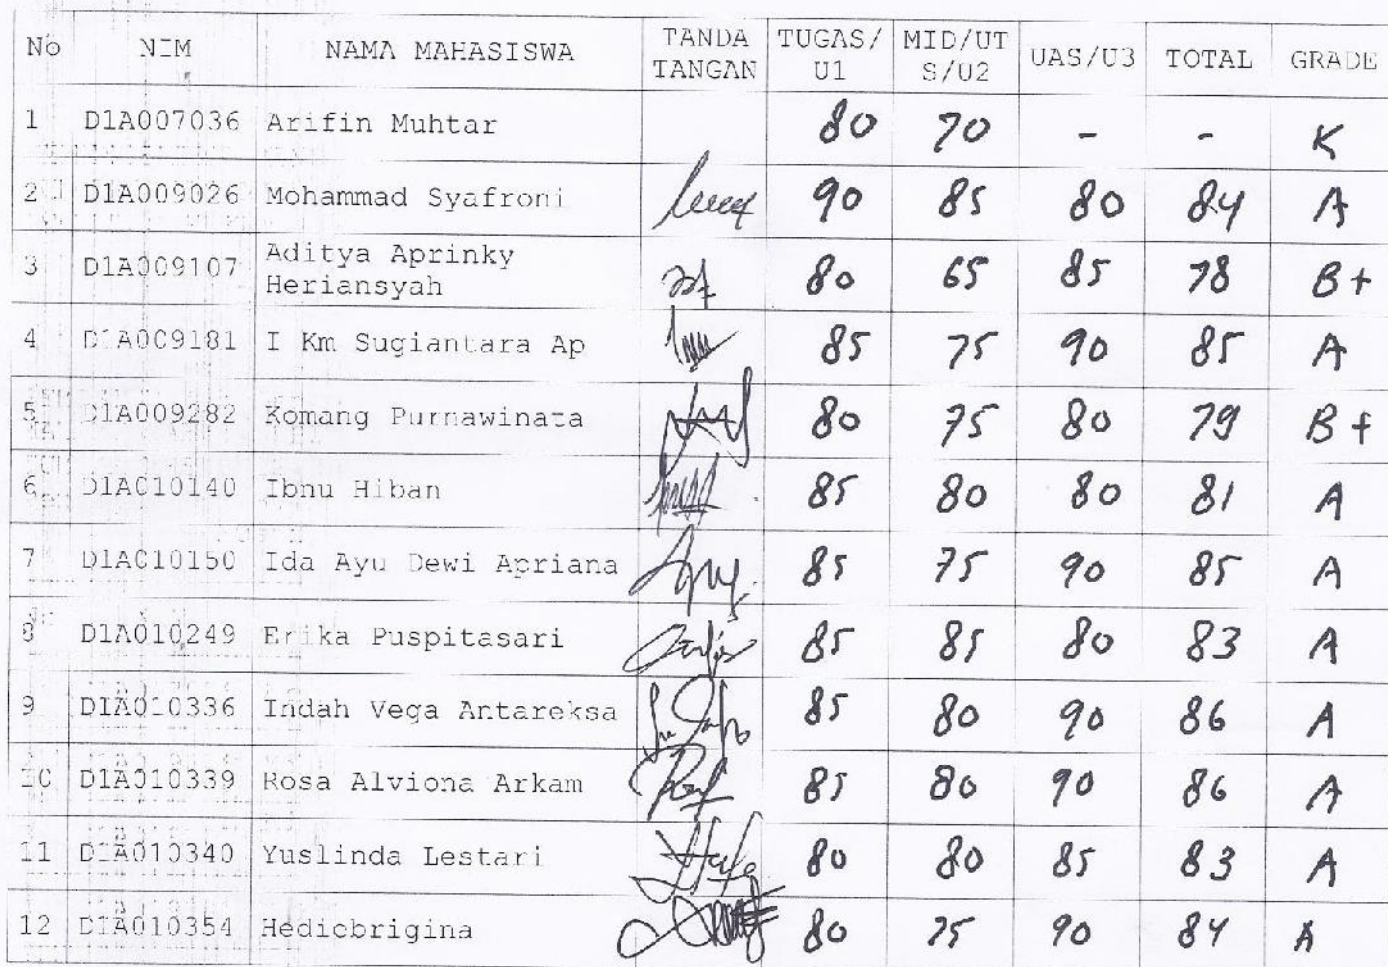 No NIM NAMA MAHASISWA TANDA TANGAN TUGAS/U1 MID/UTS/U2 UAS/U3 TOTAL GRADE
1 D1A007036 Arifin Muhtar 80 70 - - K
2 D1A009026 Mohammad Syafroni 90 85 80 84 A
3 D1A009107 Aditya Aprinky Heriansyah 80 65 85 78 B+
4 D1A009181 I Km Sugiantara Ap 85 75 90 85 A
5 D1A009282 Komang Purnawinata 80 75 80 79 B+
6 D1A010140 Ibnu Hiban 85 80 80 81 A
7 D1A010150 Ida Ayu Dewi Apriana 85 75 90 85 A
8 D1A010249 Erika Puspitasari 85 85 80 83 A
9 D1A010336 Indah Vega Antareksa 85 80 90 86 A
10 D1A010339 Rosa Alviona Arkam 85 80 90 86 A
11 D1A010340 Yuslinda Lestari 80 80 85 83 A
12 D1A010354 Hediobrigina 80 75 90 84 A